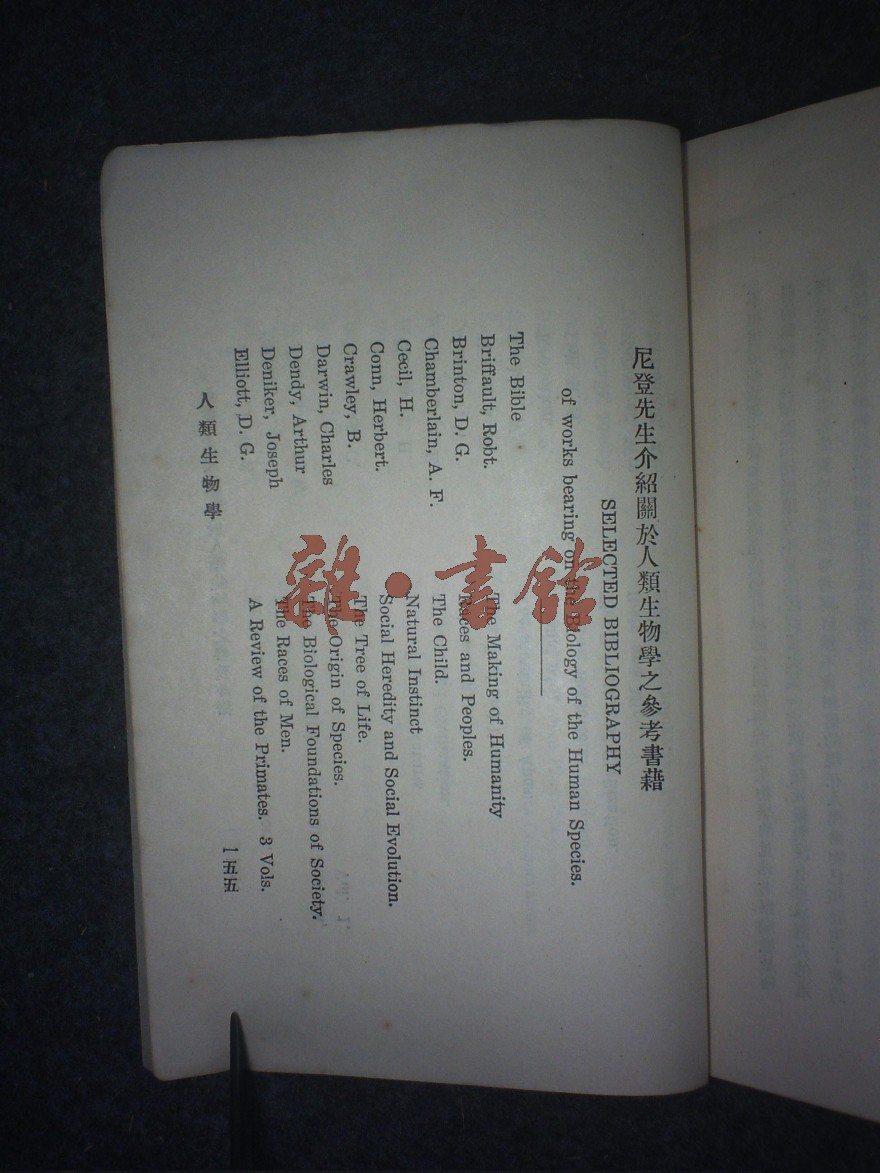 尼登先生介紹關於人類生物學之參考書藉
SELECTED BIBLIOGRAPHY
of works bearing on the Biology of the Human Species.
The Bible
Briffault, Robt. The Making of Humanity
Brinton, D. G. Races and Peoples.
Chamberlain, A. F. The Child.
Cecil, H. Natural Instinct
Conn, Herbert. Social Heredity and Social Evolution.
Crawley, B. The Tree of Life.
Darwin, Charles The Origin of Species.
Dendy, Arthur The Biological Foundations of Society.
Deniker, Joseph The Races of Men.
Elliott, D. G. A Review of the Primates. 3 Vols.
人類生物學 一五五
雜·書館